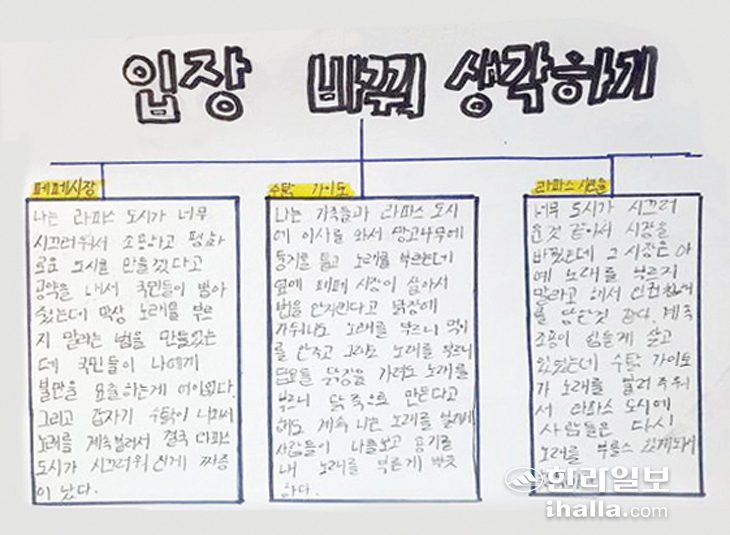 입장 바꿔 생각하기
페페시장
나는 라파스 도시가 너무
시끄러워서 조용하고 평화
로운 도시를 만들겠다고
공약을 내서 국민들이 뽑아
줬는데 막상 노래를 부르
지 말라는 법을 만들었는
데 국민들이 나에게
불만을 표출하는게 어이없다.
그리고 갑자기 수탉이 나타나서
노래를 계속 불러서 결국 라파스
도시가 시끄러워 진게 짜증
이 났다.
수탉 가이토
나는 가족들과 라파스 도시
에 이사를 와서 망고나무에
둥지를 틀고 노래를 부르는데
옆에 페페 시장이 살아서
법을 안지킨다고 닭장에
가둬놔도 노래를 부르니 먹이
를 안주고 그래도 노래를 부르니
담요를 닭장을 가려도 노래를
부르니 닭죽으로 만든다고
해도 계속 나는 노래를 불렀
사람들이 나를보고 용기를
내 노래를 부른게 뿌듯
하다.
라파스 시민들
너무 도시가 시끄러
운것 같아서 시장을
바꿨는데 그 시장은 아
예 노래를 부르지
말라고 해서 인권침해
를 당한것 같다. 계속
조용히 힘들게 살고
있었는데 수탉 가이토
가 노래를 불러 주워
서 라파스 도시에
사람들은 다시
노래를 부를수 있게되어
한라일보
ihalla.com